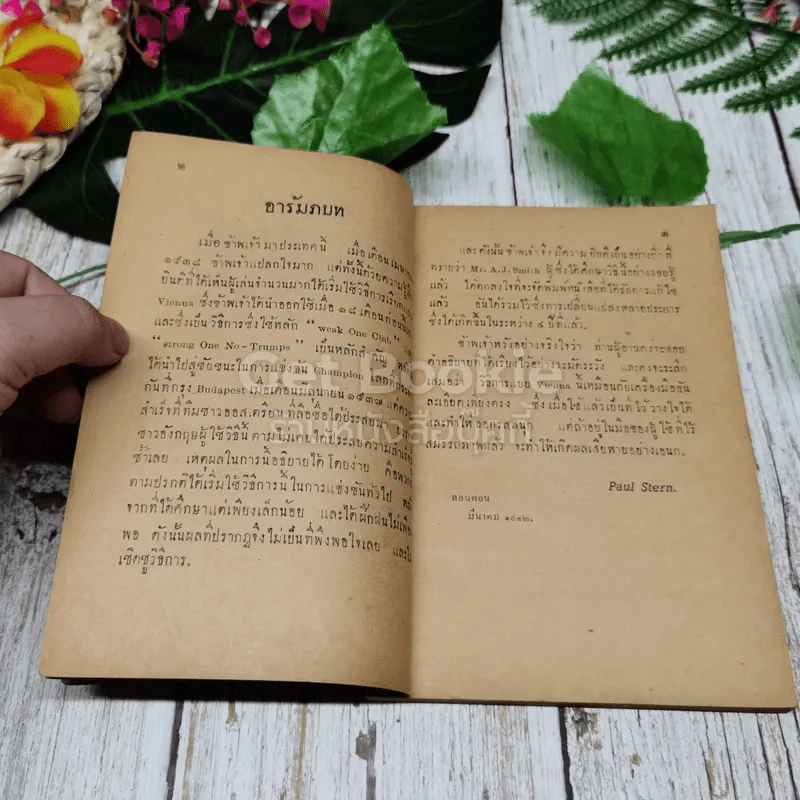 ๒
อารัมภบท
เมื่อ ข้าพเจ้า มาประเทศนี้ เมื่อเดือนเมษายน
๑๙๓๘ ข้าพเจ้าแปลกใจมาก แต่ทั้งนี้ด้วยความรู้สึก
ยินดีที่ได้เห็นผู้เล่นจำนวนมากได้เริ่มใช้วิธีการเรียก
Vienna ซึ่งข้าพเจ้าได้นำออกใช้เมื่อ ๑๘ เดือนก่อนนี้
และซึ่งเป็นวิธีการซึ่งใช้หลัก "weak One Club"
"strong One No-Trumps" เป็นหลักสำคัญ
ได้นำไปสู่ชัยชนะในการแข่งขัน Champion โลก
กันที่กรุง Budapest เมื่อเดือนมิถุนายน ๑๙๓๗ แต่ความ
สำเร็จที่ทีมชาวออสเตรียน ที่ลือชื่อได้ประสบมา
ชาวอังกฤษผู้ใช้วิธีนี้ ตามไม่เคยได้ประสบความสำเร็จ
ซ้ำเลย เหตุผลในการนี้อธิบายได้โดยง่าย คือพวก
ตามปรกติได้เริ่มใช้วิธีการนี้ในการแข่งขันทั่วไป หลัง
จากที่ได้ศึกษาแต่เพียงเล็กน้อย และได้ฝึกฝนไม่เพียง
พอ ดังนั้นผลที่ปรากฏจึงไม่เป็นที่พึงพอใจเลย และไม่
เชิดชูวิธีการ.
๓
และดังนั้น ข้าพเจ้าจึงมีความยินดีเป็นอย่างยิ่งที่
ทราบว่า Mr. A.J. Smith ผู้ซึ่งได้ศึกษาวิธีนี้อย่างรอบรู้
แล้ว ได้ตกลงใจที่จะจัดพิมพ์หนังสือที่ได้รับการแก้ไข
แล้ว อันได้รวมไว้ซึ่งการเปลี่ยนแปลงหลายประการ
ซึ่งได้เกิดขึ้นในระหว่าง ๔ ปีที่แล้ว.
ข้าพเจ้าหวังอย่างจริงใจว่า ท่านผู้อ่านคงจะชอบ
คำอธิบายที่ได้เรียงไว้อย่างระมัดระวัง และคงจะระลึก
เสมอว่า วิธีการแบบ Vienna นี้เหมือนกับเครื่องมืออัน
ละเอียดเที่ยงตรง ซึ่งเมื่อใช้แล้วเป็นที่ไว้วางใจได้
และทำให้ออกรสสนุก แต่ถ้าอยู่ในมือของผู้ใช้ที่ไร้
สมรรถภาพแล้ว จะทำให้เกิดผลเสียหายอย่างเอนก.
Paul Stern.
ลอนดอน
มีนาคม ๑๙๔๒.
Get Bookie
ร้านหนังสือบุ๊คกี้